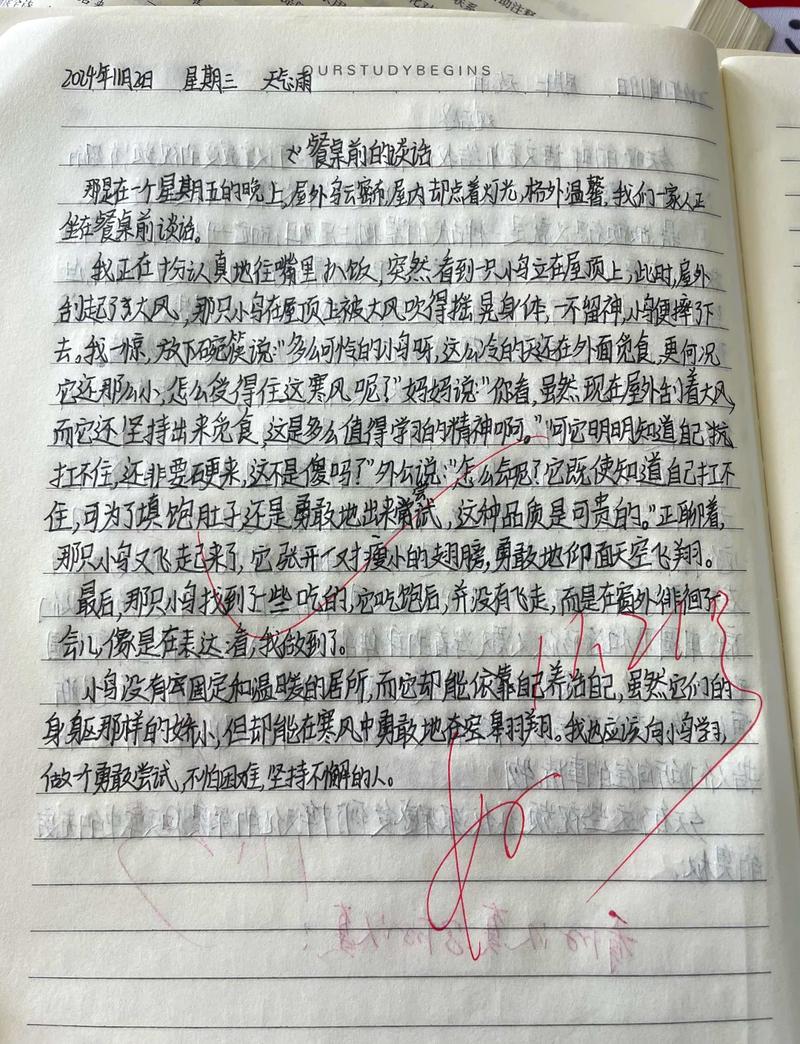 OURSTUDYBEGINS
2024年11月20日 星期三 天气雨
餐桌前的谈话
那是在一个星期五的晚上,屋外乌云密布,屋内却点着灯光,格外温馨,我们一家人正
坐在餐桌前谈话。
我正在十分认真地往嘴里扒饭,突然看到一只小鸟立在屋顶上,此时,屋外
刮起了大风,那只小鸟在屋顶上被大风吹得摇晃身体,一不留神,小鸟便摔了下
去。我一惊,放下碗筷说:“多么可怜的小鸟呀,这么冷的天还在外面觅食,更何况
它还那么小,怎么受得住这寒风呢?”妈妈说:“你看,虽然现在屋外刮着大风,
而它还坚持出来觅食,这是多么值得学习的精神啊。”“可它明明知道自己
扛不住,还非要硬来,这不是傻吗?”外公说:“怎么会呢?它既使知道自己扛不
住,可为了填饱肚子还是勇敢地出来尝试,这种品质是可贵的。”正聊着,
那只小鸟又飞起来了,它张开一双瘦小的翅膀,勇敢地仰面天空飞翔。
最后,那只小鸟找到了一些吃的,它吃饱后,并没有飞走,而是在窗外徘徊了
会儿,像是在表达着,我做到了。
小鸟没有固定和温暖的居所,而它却能依靠自己养活自己,虽然它们的
身躯那样的娇小,但却能在寒风中勇敢地在空翱翔。我也应该向小鸟学习,
做个勇敢尝试,不怕困难,坚持不懈的人。